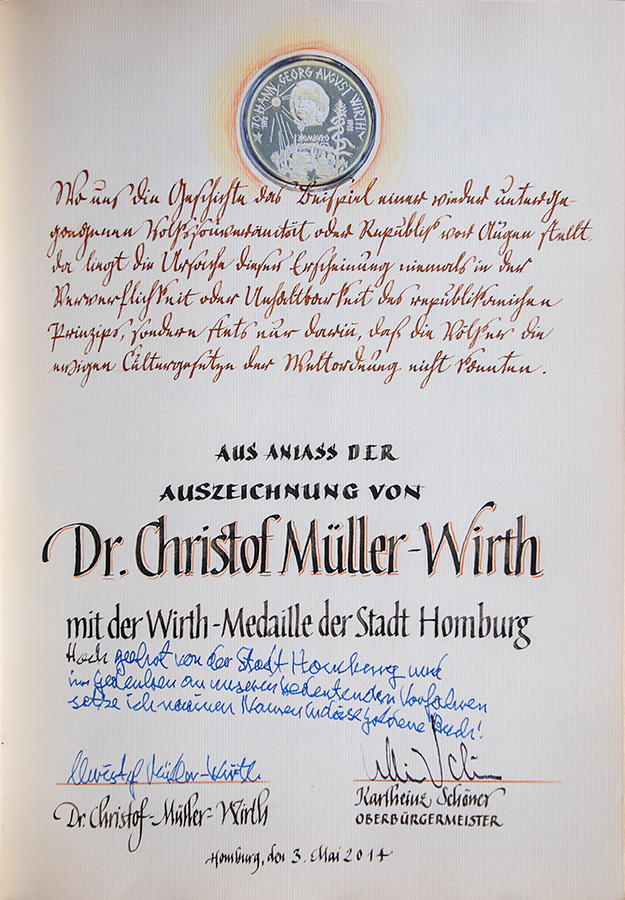 JOHANN GEORG AUGUST WIRTH
HOMBURG
Wo uns die Geschichte das Beispiel einer wieder unterge-
gangenen Volkssouveränität oder Republik vor Augen stellt,
da liegt die Ursache dieser Erscheinung niemals in der
Verwerflichkeit oder Unhaltbarkeit des republikanischen
Prinzips, sondern stets nur darin, daß die Völker die
ewigen Culturgesetze der Weltordnung nicht kannten.
AUS ANLASS DER
AUSZEICHNUNG VON
Dr. Christof Müller-Wirth
mit der Wirth-Medaille der Stadt Homburg
Hoch geehrt von der Stadt Homburg und
im Gedenken an unseren bedeutenden Vorfahren
setze ich meinen Namen in das goldene Buch!
Christof Müller-Wirth
Dr. Christof-Müller-Wirth
Karlheinz Schöner
OBERBÜRGERMEISTER
Homburg, den 3. Mai 2014